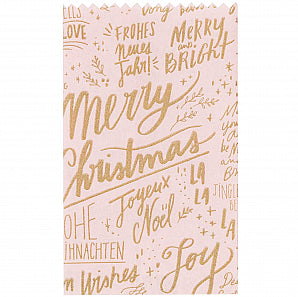 LOVE
FROHES
neues
Jahr!
MERRY
and
BRIGHT
Merry
Christmas
Joyeux
Noël
LA
LA
JINGLE
OHE
EIHNACHTEN
Wishes
Joy